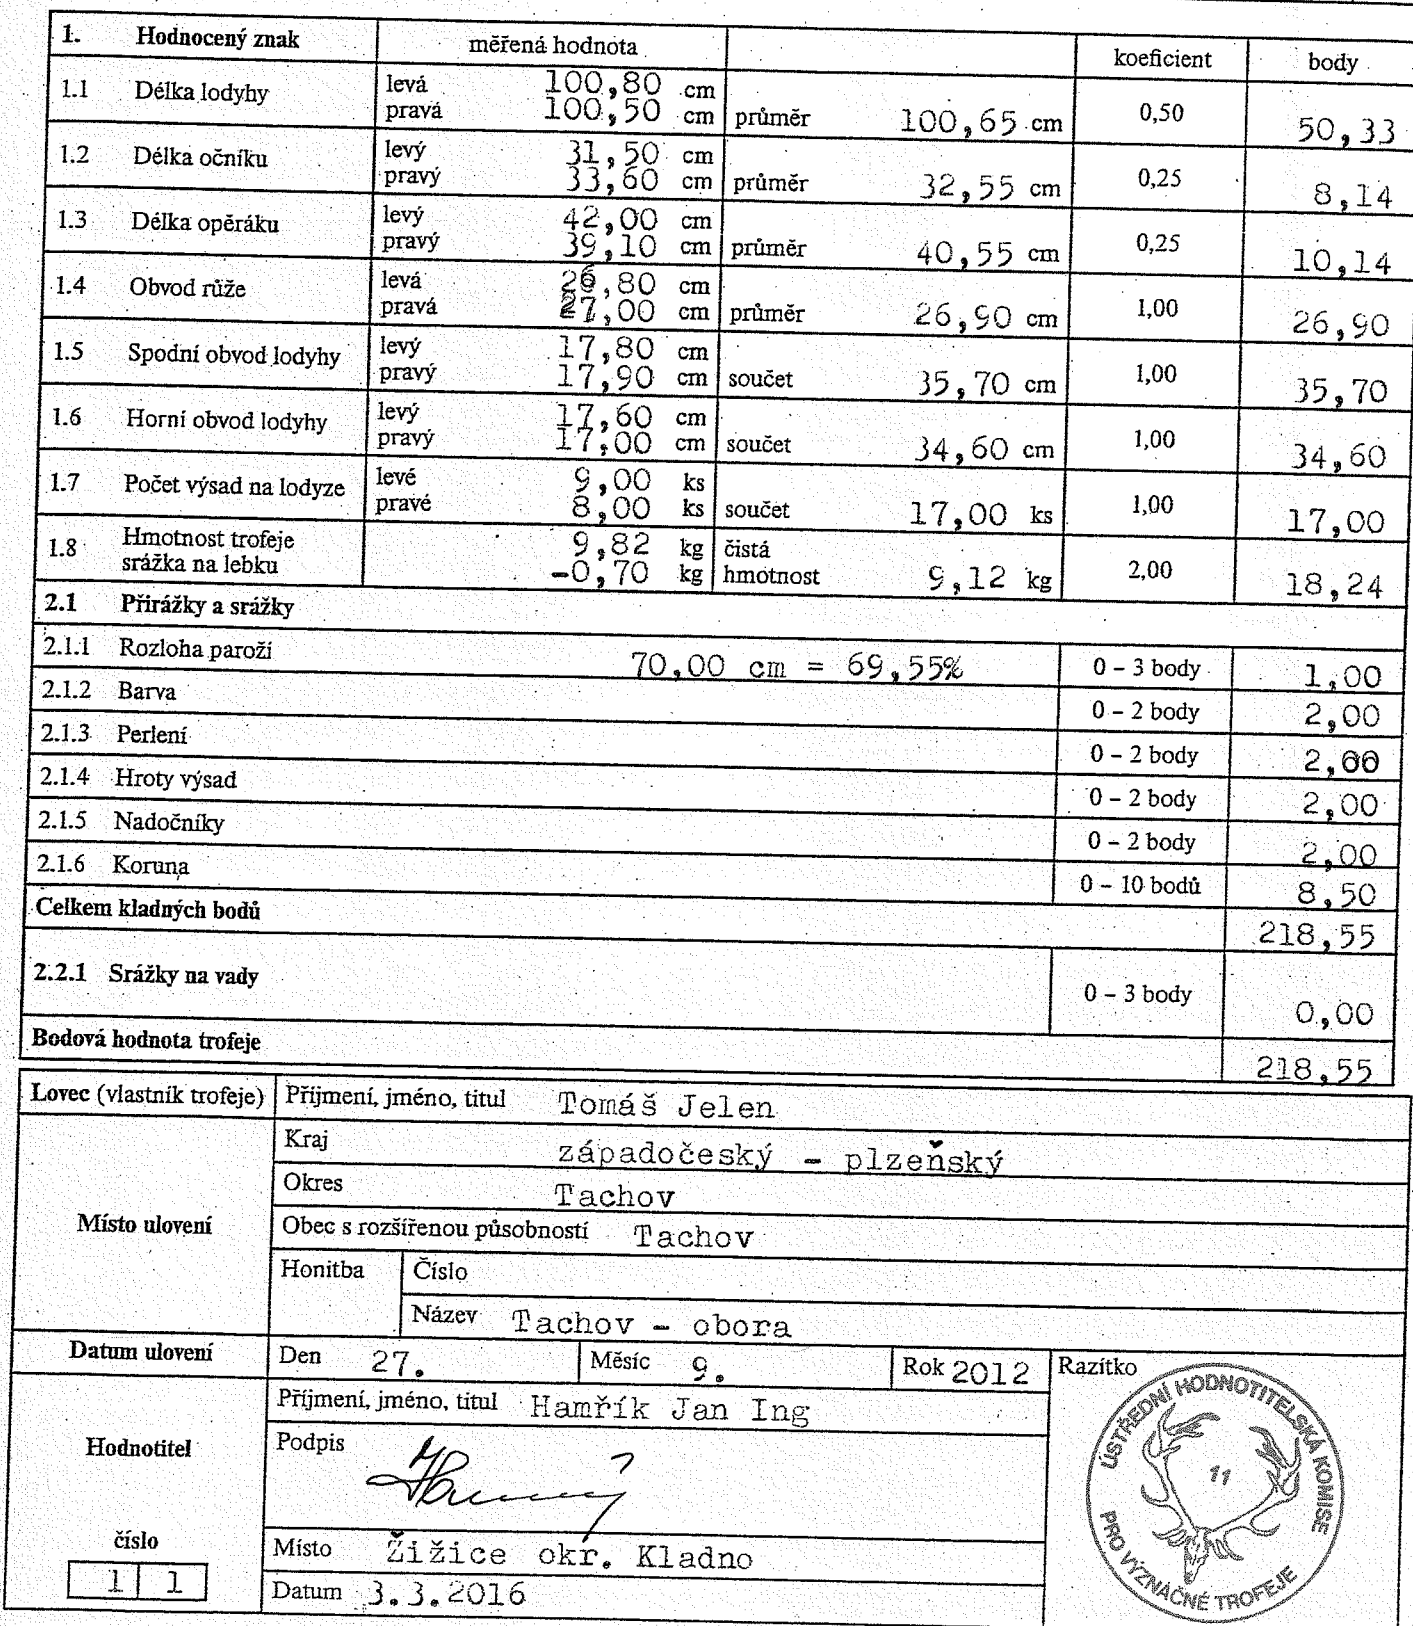 1. Hodnocený znak měřená hodnota koeficient body
1.1 Délka lodyhy levá 100,80 cm
pravá 100,50 cm průměr 100,65 cm 0,50 50,33
1.2 Délka očníku levý 31,50 cm
pravý 33,60 cm průměr 32,55 cm 0,25 8,14
1.3 Délka opěráku levý 42,00 cm
pravý 39,10 cm průměr 40,55 cm 0,25 10,14
1.4 Obvod růže levá 26,80 cm
pravá 27,00 cm průměr 26,90 cm 1,00 26,90
1.5 Spodní obvod lodyhy levý 17,80 cm
pravý 17,90 cm součet 35,70 cm 1,00 35,70
1.6 Horní obvod lodyhy levý 17,60 cm
pravý 17,00 cm součet 34,60 cm 1,00 34,60
1.7 Počet výsad na lodyze levé 9,00 ks
pravé 8,00 ks součet 17,00 ks 1,00 17,00
1.8 Hmotnost trofeje 9,82 kg čistá
srážka na lebku -0,70 kg hmotnost 9,12 kg 2,00 18,24
2.1 Přirážky a srážky
2.1.1 Rozloha paroží 70,00 cm = 69,55% 0 – 3 body 1,00
2.1.2 Barva 0 – 2 body 2,00
2.1.3 Perlení 0 – 2 body 2,00
2.1.4 Hroty výsad 0 – 2 body 2,00
2.1.5 Nadočníky 0 – 2 body 2,00
2.1.6 Koruna 0 – 10 bodů 8,50
Celkem kladných bodů 218,55
2.2.1 Srážky na vady 0 – 3 body 0,00
Bodová hodnota trofeje 218,55
Lovec (vlastník trofeje) Příjmení, jméno, titul Tomáš Jelen
Kraj západočeský - plzeňský
Okres Tachov
Místo ulovení Obec s rozšířenou působností Tachov
Honitba Číslo
Název Tachov - obora
Datum ulovení Den 27. Měsíc 9. Rok 2012 Razítko
Příjmení, jméno, titul Hamřík Jan Ing
Hodnotitel Podpis
číslo Místo Žižice okr. Kladno
1 1 Datum 3.3.2016
ÚSTŘEDNÍ HODNOTITELSKÁ KOMISE
11
PRO VÝZNAČNÉ TROFEJE